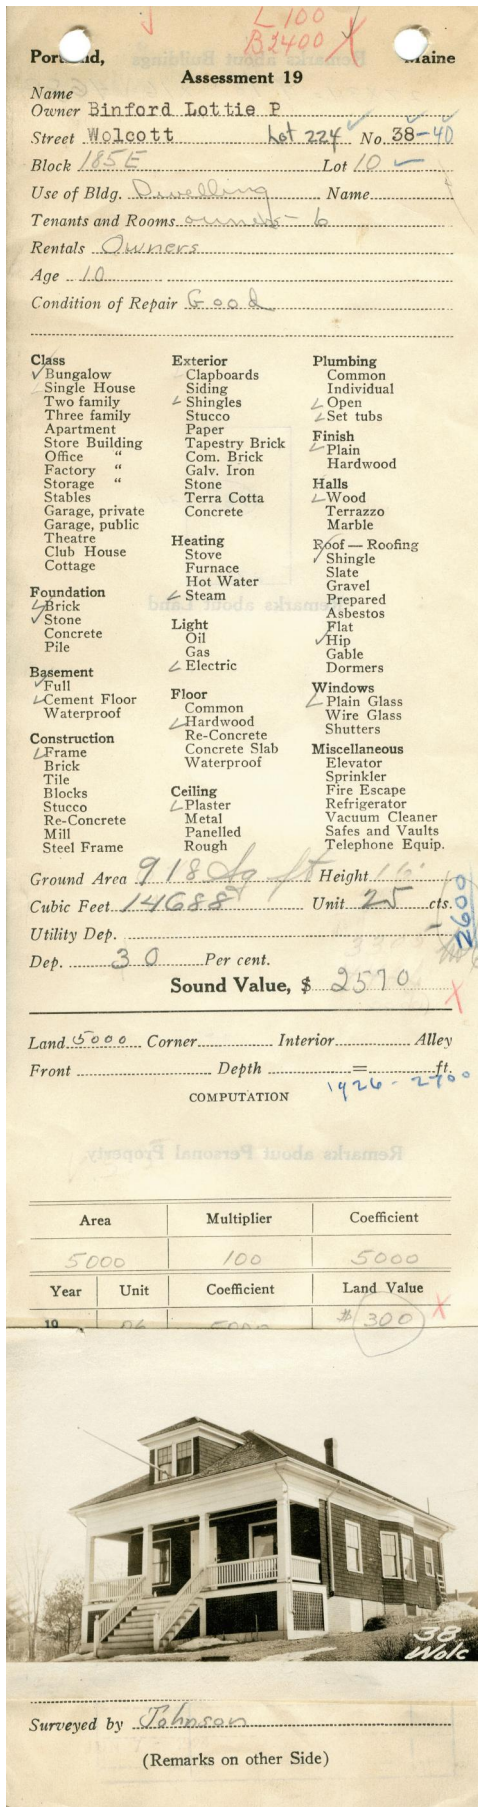 L 100
B 2400 X
Portland, Maine
Assessment 19
Name
Owner Binford Lottie P
Street Wolcott Lot 224 No. 38-40
Block 185E Lot 10
Use of Bldg. Dwelling Name
Tenants and Rooms owner - 6
Rentals Owners
Age 10
Condition of Repair Good
Class
Bungalow
Single House
Two family
Three family
Apartment
Store Building
Office "
Factory "
Storage "
Stables
Garage, private
Garage, public
Theatre
Club House
Cottage
Foundation
Brick
Stone
Concrete
Pile
Basement
Full
Cement Floor
Waterproof
Construction
Frame
Brick
Tile
Blocks
Stucco
Re-Concrete
Mill
Steel Frame
Exterior
Clapboards
Siding
Shingles
Stucco
Paper
Tapestry Brick
Com. Brick
Galv. Iron
Stone
Terra Cotta
Concrete
Heating
Stove
Furnace
Hot Water
Steam
Light
Oil
Gas
Electric
Floor
Common
Hardwood
Re-Concrete
Concrete Slab
Waterproof
Ceiling
Plaster
Metal
Panelled
Rough
Plumbing
Common
Individual
Open
Set tubs
Finish
Plain
Hardwood
Halls
Wood
Terrazzo
Marble
Roof — Roofing
Shingle
Slate
Gravel
Prepared
Asbestos
Flat
Hip
Gable
Dormers
Windows
Plain Glass
Wire Glass
Shutters
Miscellaneous
Elevator
Sprinkler
Fire Escape
Refrigerator
Vacuum Cleaner
Safes and Vaults
Telephone Equip.
Ground Area 918 Sq ft Height 16
Cubic Feet 14688 Unit 25 cts.
2600
Utility Dep.
Dep. 30 Per cent.
Sound Value, $ 2570 X
Land 5000 Corner Interior Alley
Front Depth = ft.
1926 - 2700
COMPUTATION
Area Multiplier Coefficient
5000 100 5000
Year Unit Coefficient Land Value
19 06 5000 $ 300 X
38
Wolc
Surveyed by Johnson
(Remarks on other Side)